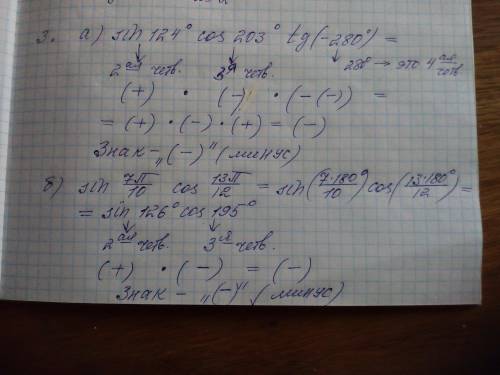 3. а) sin 124° cos 203° tg(-280°) =
2ая четв. 3я 280° → это 4ая четв.
(+) · (-) · (-(-)) =
= (+) · (-) · (+) = (-)
Знак - „(-)" (минус)
б) sin 7π/10 cos 13π/12 = sin(7·180°/10) cos(13·180°/12) =
= sin 126° cos 195°
2ая четв. 3я четв.
(+) · (-) = (-)
Знак - „(-)" (минус)